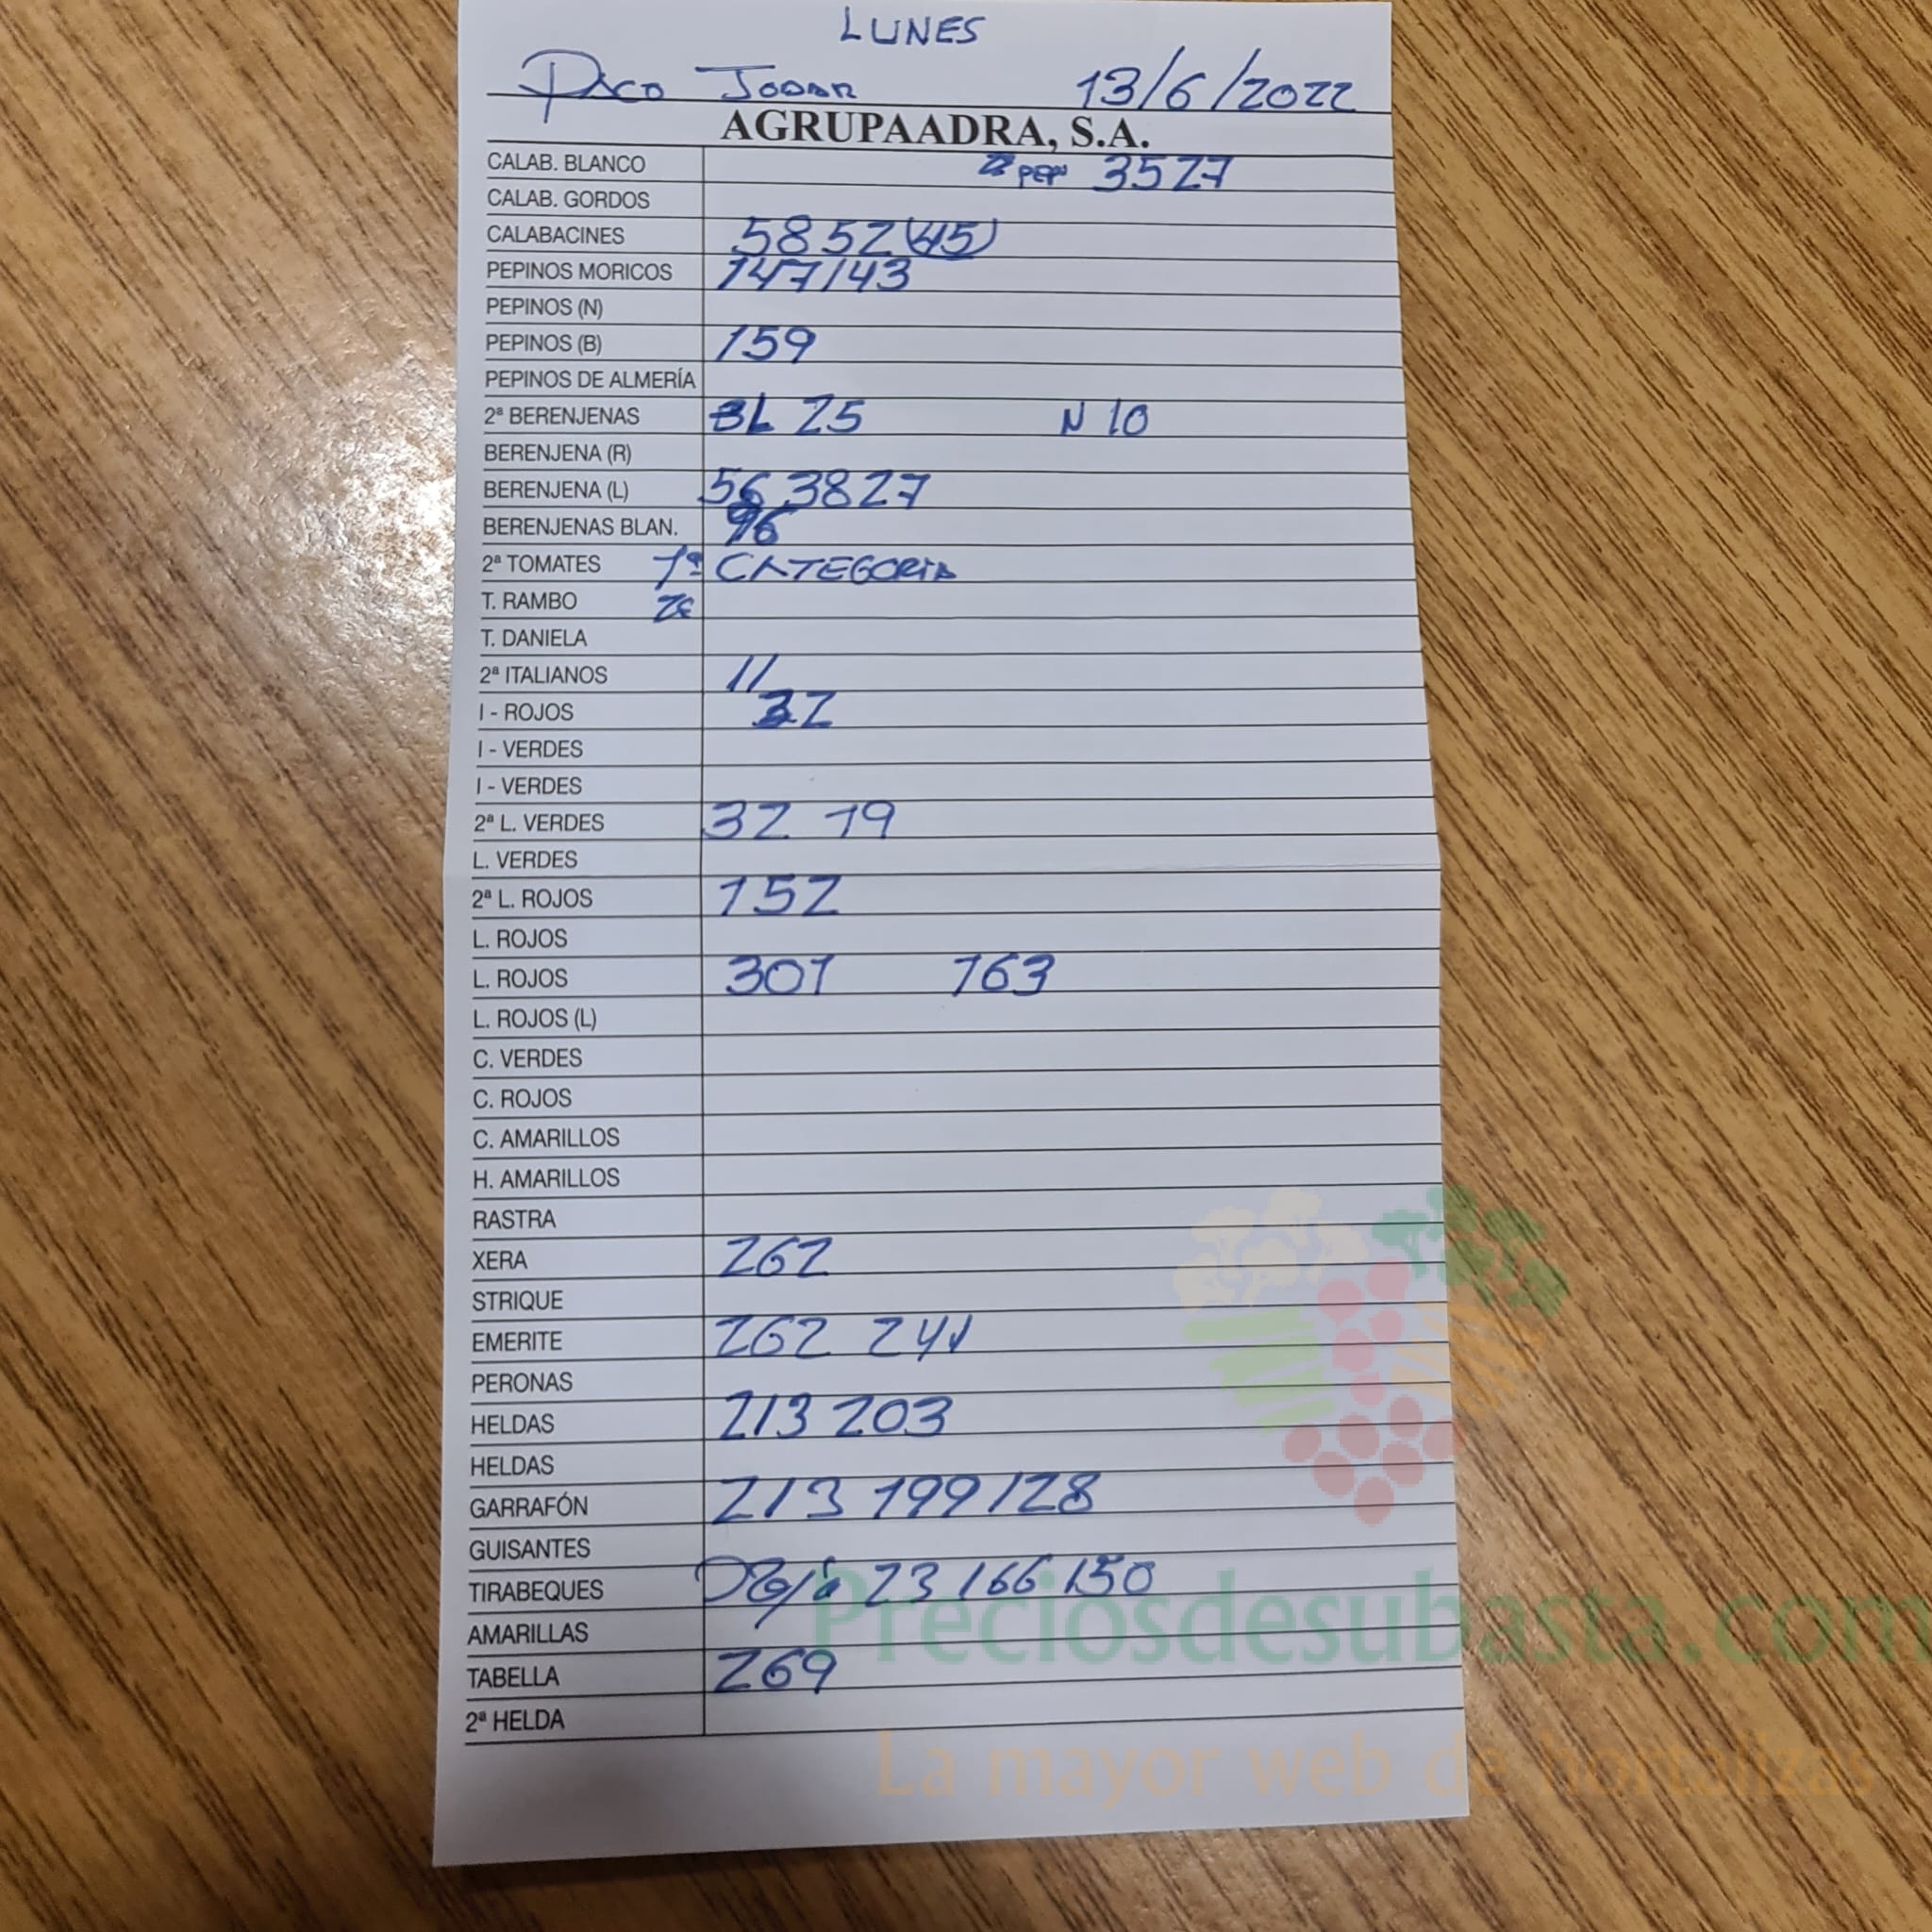 LUNES
PACO JODAR 13/6/2022
AGRUPAADRA, S.A.
CALAB. BLANCO PEP 35 27
CALAB. GORDOS
CALABACINES 58 52 (45)
PEPINOS MORICOS 147 143
PEPINOS (N)
PEPINOS (B) 159
PEPINOS DE ALMERÍA
2ª BERENJENAS BL 25 N 10
BERENJENA (R)
BERENJENA (L) 56 38 27
BERENJENAS BLAN. 96
2ª TOMATES 1ª CATEGORIA
T. RAMBO
T. DANIELA
2ª ITALIANOS 11
I - ROJOS 32
I - VERDES
I - VERDES
2ª L. VERDES 32 19
L. VERDES
2ª L. ROJOS 152
L. ROJOS
L. ROJOS 301 163
L. ROJOS (L)
C. VERDES
C. ROJOS
C. AMARILLOS
H. AMARILLOS
RASTRA
XERA 262
STRIQUE
EMERITE 262 241
PERONAS
HELDAS 213 203
HELDAS
GARRAFÓN 213 199 128
GUISANTES
TIRABEQUES 23 166 150
AMARILLAS
TABELLA 269
2ª HELDA
Preciosdesubasta.com
La mayor web de hortalizas